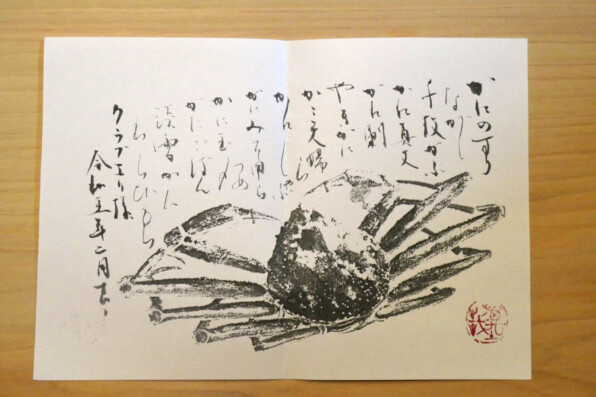 かにのすり
ながし
千枚かぶ
かに真丈
かに刺
やきがに
かにしゃぶ
かにみそ甲ら
かに玉〆
かにごはん
淡雪かん
わらびもち
クラブエリ様
令和五年二月